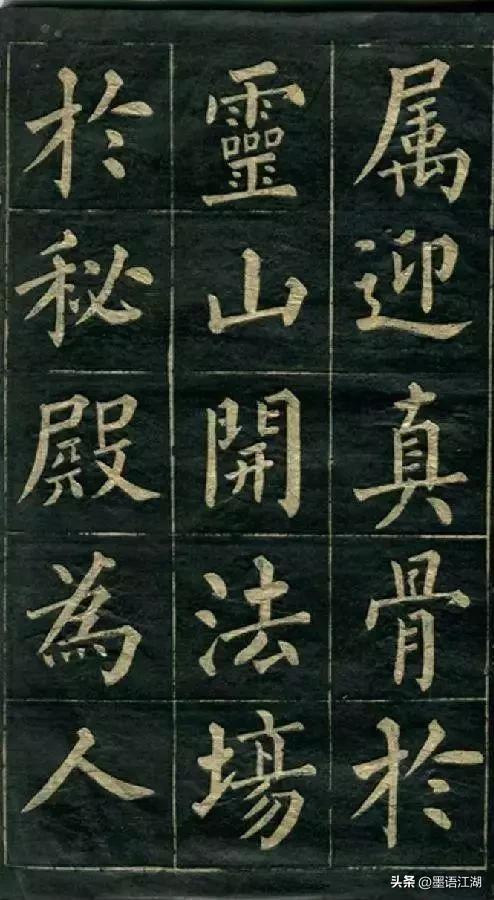 属迎真骨於
靈山開法場
於秘殿為人
头条 @墨语江湖